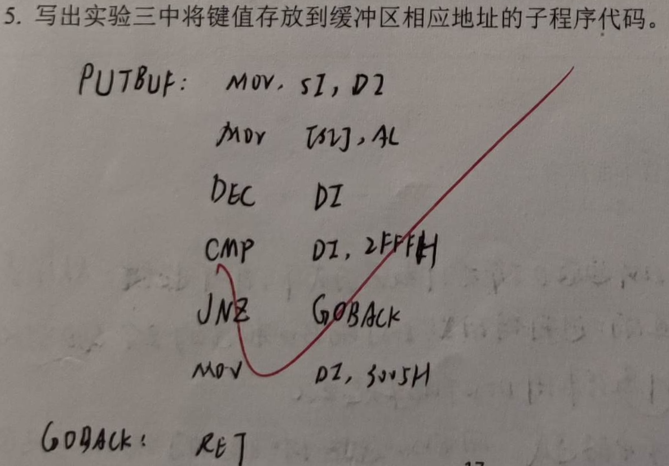 5. 写出实验三中将键值存放到缓冲区相应地址的子程序代码。
PUTBUF: MOV. SI, DI
MOV [SI], AL
DEC DI
CMP DI, 2FFFH
JNZ GOBACK
MOV DI, 3005H
GOBACK: RET